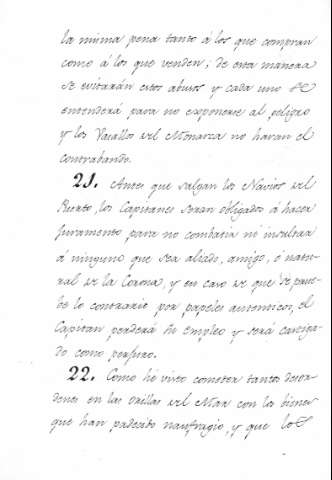 la misma pena tanto á los que compran
como á los que venden; de esta manera
se evitarán estos abusos y cada uno se
entenderá para no exponerse al peligro
y los Vasallos del Monarca no haran el
contrabando.
21. Antes que salgan los Navios del
Puerto, los Capitanes seran obligados á hacer
juramento para no combatir ni insultar
á ninguno que sea aliado, amigo, ó natu-
ral de la Corona, y en caso de que se prue-
be lo contrario por papeles autenticos, el
Capitan perderá su Empleo y será castiga-
do como perjuro.
22. Como hé visto cometer tantos desor-
denes en las orillas del Mar con los bienes
que han padecido naufragio, y que los